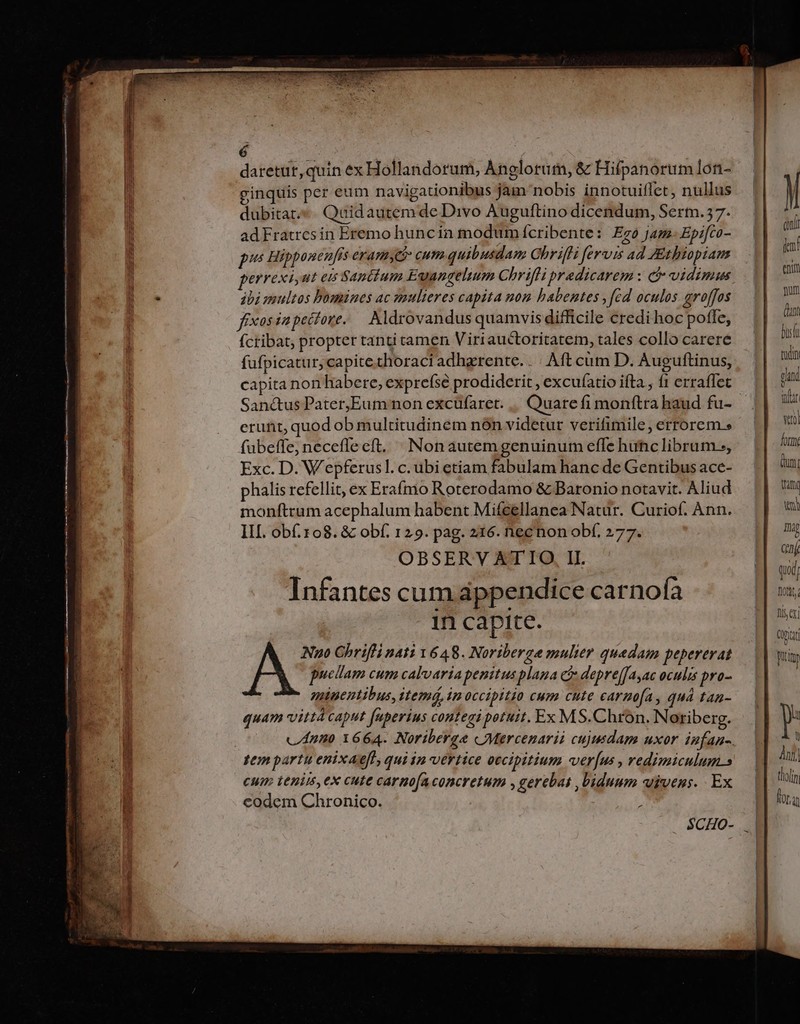 6
daretur, quin ex Hollandorum, Anglorum, & Hiſpanorum lon-
ginquis per eum navigationibus jam nobis innotuiſſet, nullus
dubitat. Quid autem de Divo Auguſtino dicendum, Serm. 37.
ad Fratres in Eremo hunc in modum ſcribente: Ego jam Epiſco-
pus Hipponenſis eram, & cum quibusdam Chriſti ſervis ad Æthiopiam
perrexi, ut eis Sanctum Evangelium Chriſti prædicarem: & vidimus
ibi multos homines ac mulieres capita non habentes, ſed oculos groſſos
fixos in pectore. Aldrovandus quamvis difficile credi hoc poſſe,
ſcribat, propter tanti tamen Viri auctoritatem, tales collo carere
ſuſpicatur, capite thoraci adhærente. Aſt cùm D. Auguſtinus,
capita non habere, expreſsè prodiderit, excuſatio iſta, ſi erraſſet
Sanctus Pater, Eum non excuſaret. Quare ſi monſtra haud fu-
erunt, quod ob multitudinem nôn videtur veriſimile, errorem
ſubeſſe, neceſſe eſt. Non autem genuinum eſſe hunc librum,
Exc. D. Wepferus l. c. ubi etiam fabulam hanc de Gentibus ace-
phalis refellit, ex Eraſmo Roterodamo & Baronio notavit. Aliud
monſtrum acephalum habent Miſcellanea Natur. Curioſ. Ann.
III. obſ. 108. & obſ. 129. pag. 216. nec non obſ. 277.
OBSERVATIO. II.
Infantes cum appendice carnoſa
in capite.
ANno Chriſti nati 1648. Noribergæ mulier quædam pepererat
puellam cum calvaria penitus plana & depreſſa, ac oculis pro-
minentibus, itemq́, in occipitio cum cute carnoſa, quâ tan-
quam vittâ caput ſuperius contegi potuit. Ex MS. Chron. Noriberg.
Anno 1664. Noribergæ Mercenarii cujusdam uxor infan-
tem partu enixa eſt, qui in vertice occipitium verſus, redimiculum
cum teniis, ex cute carnoſa concretum, gerebat, biduum vivens. Ex
eodem Chronico.
SCHO-